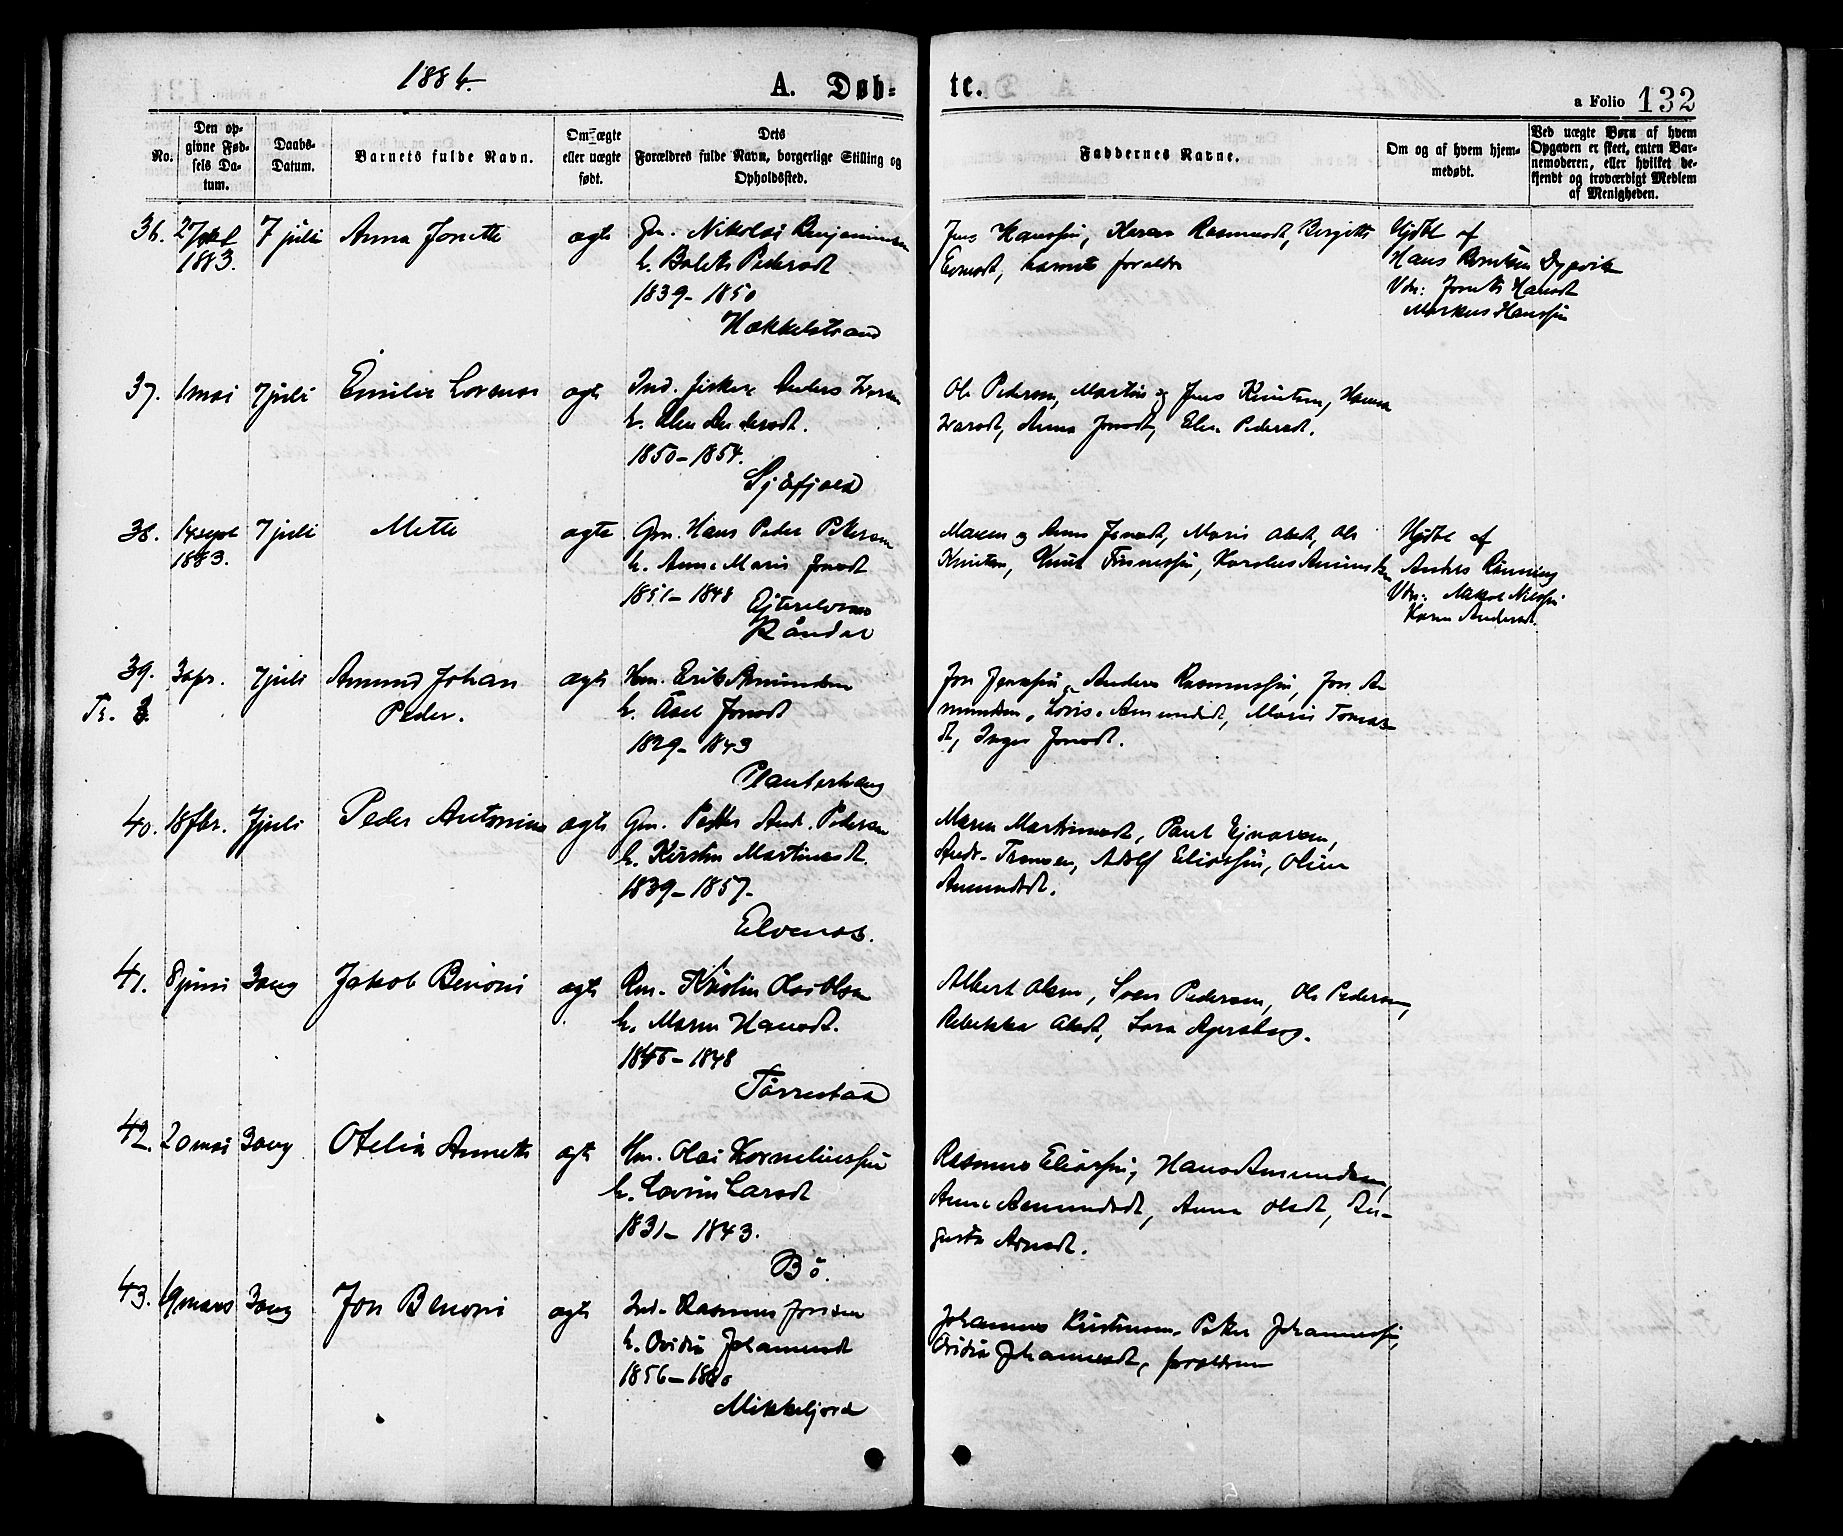 1884.
A. Døb-
te.
a Folio 132
No.
Den op-
givne Fød-
sels Da-
tum.
Daabs-
Datum.
Barnets fulde Navn.
Om ægte
eller uægte
født.
Dets
Forældres fulde Navn, borgerlige Stilling og
Opholdssted.
Faddernes Navne.
Om og af hvem hjem-
medøbt.
Ved uægte Børn af hvem
Opgaven er skeet, enten Bar-
nemoderen, eller hvilket be-
kjendt og troværdigt Medlem
af Menigheden.
36.
1883.
7 juli
Anna Jonette
ægte
Gm. Nikolai Benjaminsen
h. Bolette Pedersdt
1839 - 1850
Hækkelstrand
Jens Hanssen, Karen Rasmusdt, Birgitte
barnets foreldre
Hjdbt af
Hans Berntsen Dypvik
Vdn: Jonette Hansdt
Markus Hanssen
37.
1 mai
7 juli
Emilie Lorense
ægte
Ind. fisker Anders Ivarsen
h. Elen Andersdt.
1850 - 1854.
Sjåfjord
Ole Pedersen, Martin og Jens Knutsen, Hanna
Ivarsdt, Anna Jonsdt, Elen Pedersdt.
38.
14 sept
1883.
7 juli
Mette
ægte
Gm. Hans Peder Petersen
h. Anne Marie Jonsdt
1851 - 1848
Råndal
Maren og Anne Jonsdt, Marie Olsdt, Ole
Knutsen, Knut Tinnessen, Karolus
Hjdbt af
Anders Rånning
Vdn: Nils
Karen Andersdt.
39.
Tr. 3
3 apr.
7 juli
Amund Johan
Peder.
ægte
Hm. Erik Amundsen
h. Åsel Jonsdt
1829 - 1843
Planterhaug
Jon Jenssen, Anders Rasmussen, Jon A-
mundsen, Lovise Amundsdt, Marie Tomas-
dt, Inger Jonsdt.
40.
18 fbr.
7 juli
Peder Antonius
ægte
Gm. Petter And. Pedersen
h. Kirsten Martinusdt.
1839 - 1857.
Elvenes.
Maren Martinusdt, Paul Ejnarsen,
Andr. Tomsen, Adolf Eliassen, Oline
Amundsdt.
41.
8 juni
3 aug
Jakob Benoni
ægte
Rm. Kristen Olai Olsen
h. Maren Hansdt.
- 1848
Tårnstad
Albert Olsen, Sven Pedersen, Ole Pedersen,
Rebekka Olsdt, Sara Agersborg.
42.
20 mai
3 aug
Otelia Annette
ægte
Hm. Olai Korneliussen
h. Lovise Larsdt
1831 - 1843.
Bö.
Rasmus Eliassen, Hans Amundsen,
Anne Amundsdt, Anna Olsdt, Au-
gusta Arnsdt.
43.
19 mars
3 aug
Jon Benoni
ægte
Ind. Rasmus Jonsen
h. Ovidia Johannesdt
1856 - 1860
Mikkeljord
Johannes Kristensen, Peter Johannessen,
Ovidia Johannesdt, foreldrene